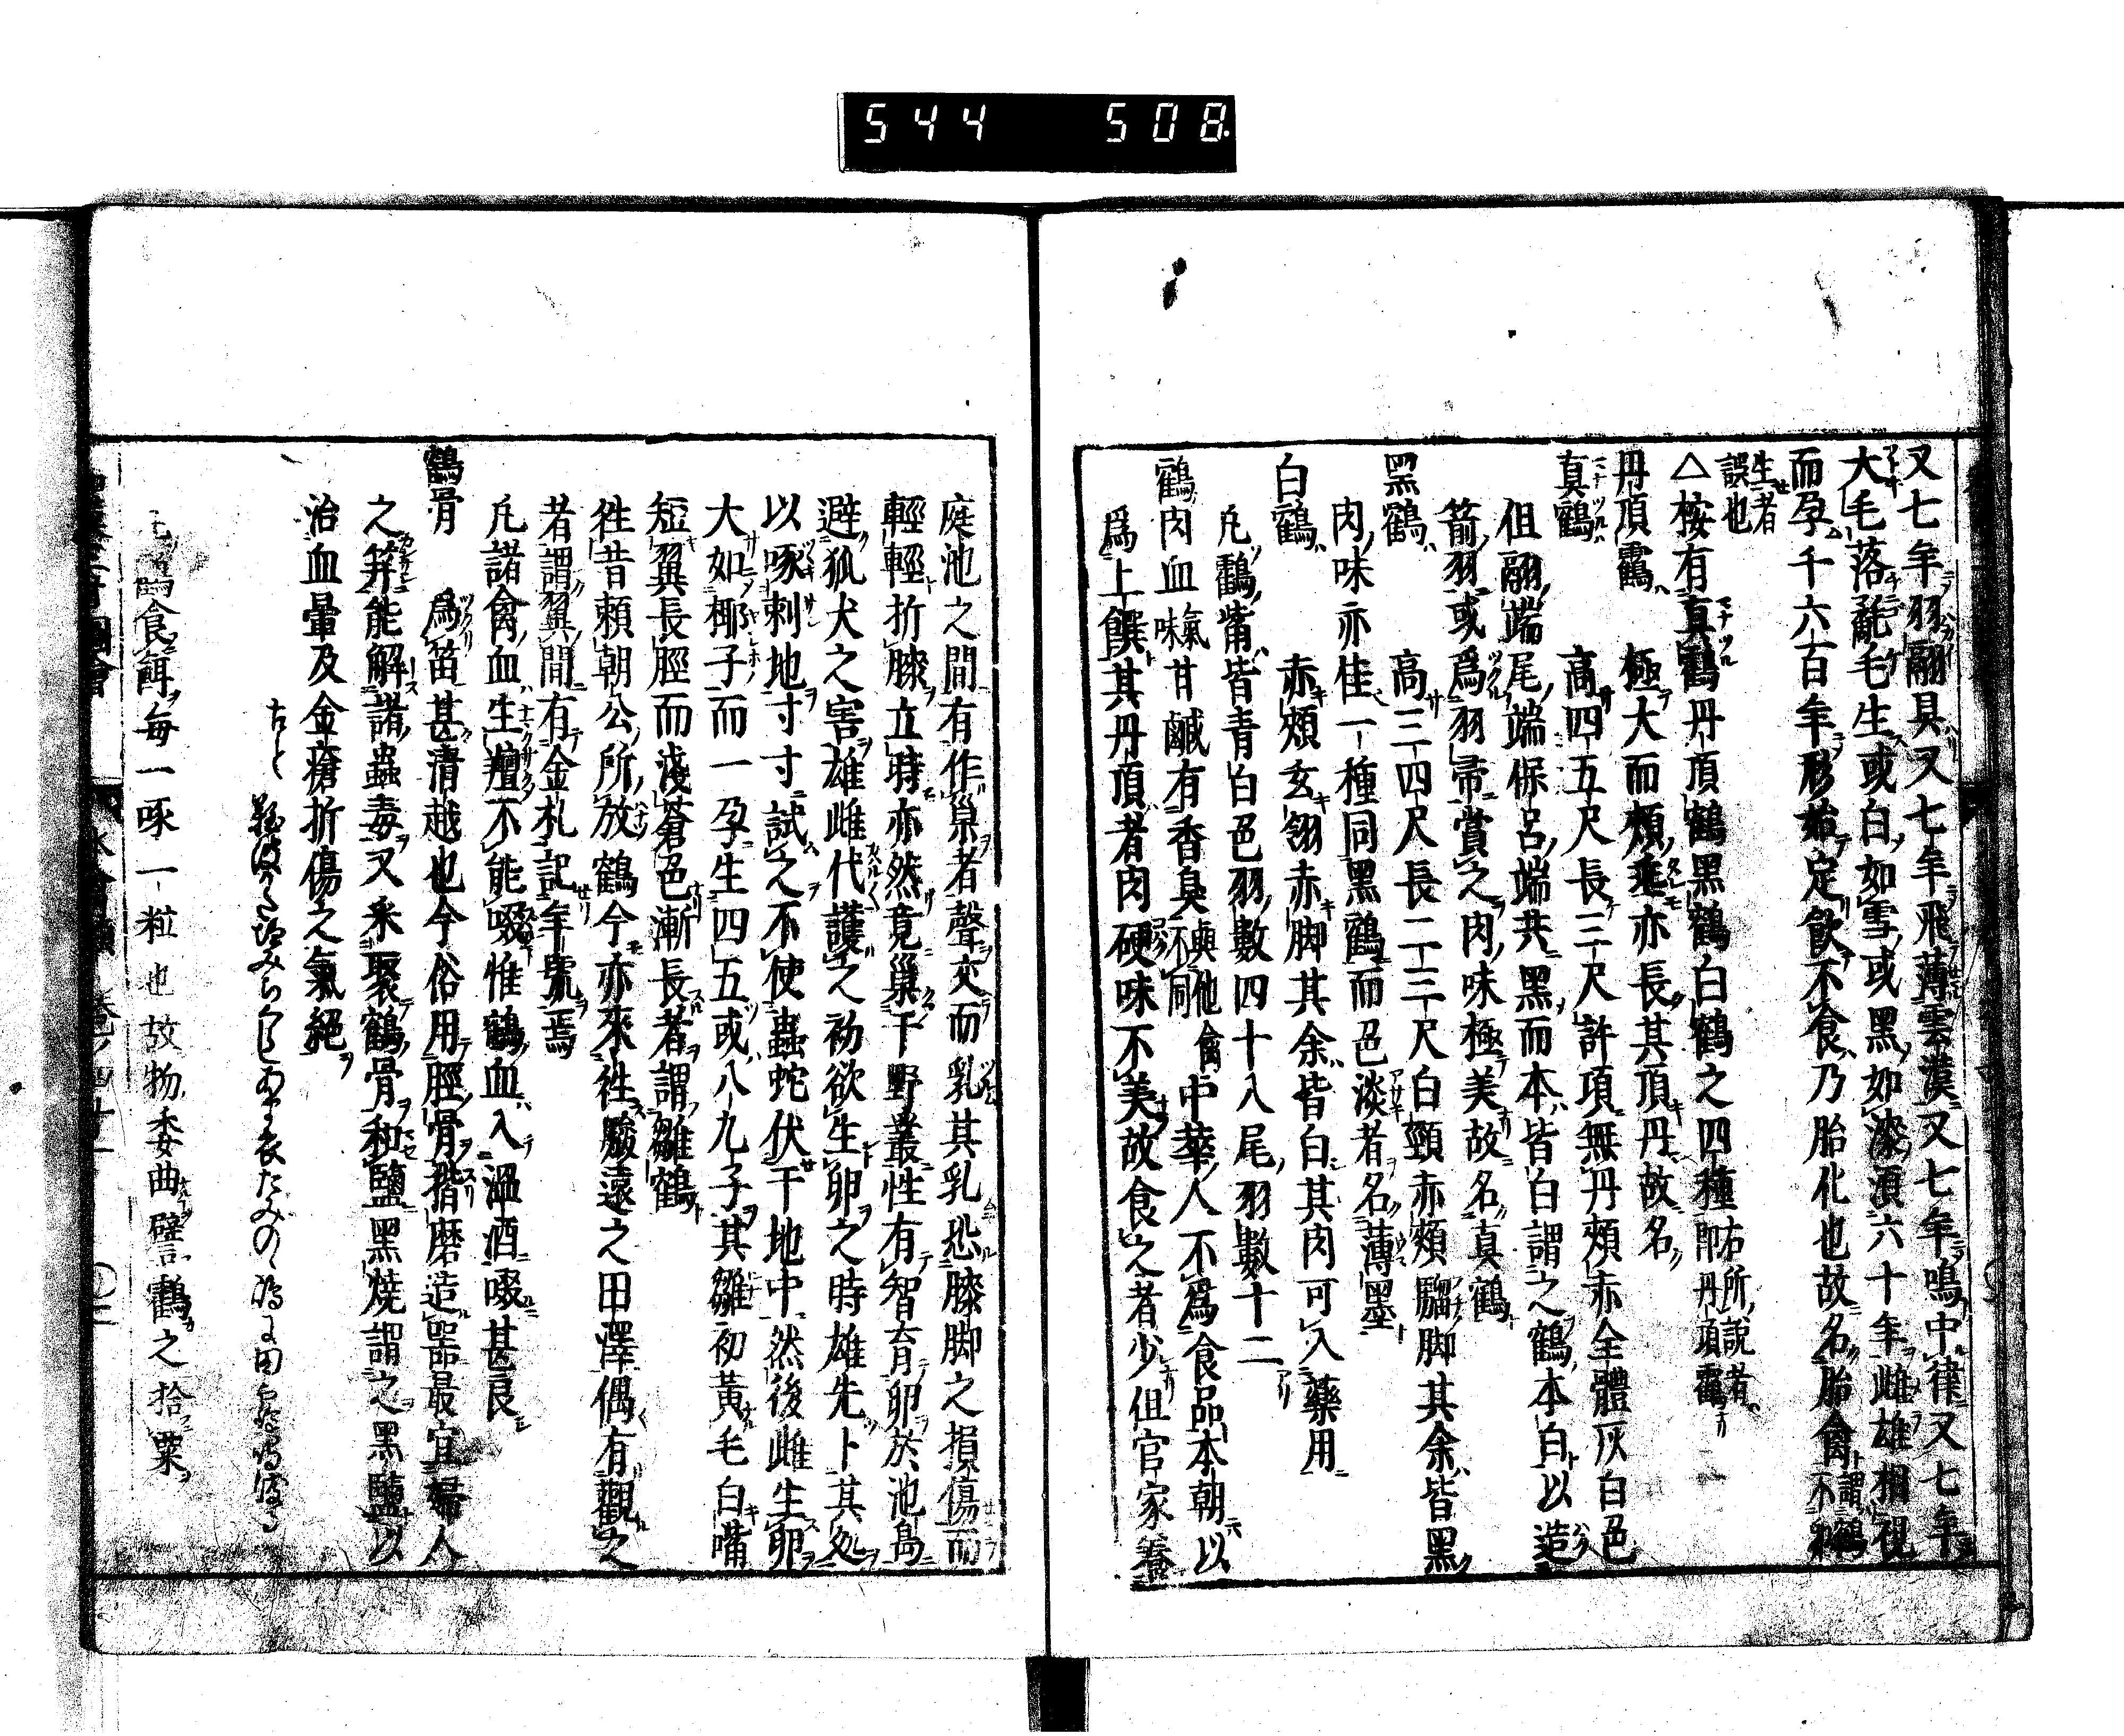 544 508
又七年羽翮具又七年飛薄雲漢又七年鳴中律又七年
大毛落氄毛生或白如雪或黑如漆濆六十年雌雄相視
而孕千六百年形始定飲不食乃胎化也故名胎禽謂鶴不卵
生者誤也
△桉有真鶴丹頂鶴黑鶴白鶴之四種右所說者即丹頂鶴
丹頂鶴 極大而頰垂亦長其頂丹故名
真鶴 高四五尺長三尺許項無丹頰赤全體灰白色
但翮端尾端保呂端共黑而本皆白謂之鶴本白以造
箭羽或爲羽帚賞之肉味極美故名真鶴
黑鶴 高三四尺長二三尺白頸赤頰騮脚其余皆黑
肉味亦佳一種同黑鶴而色淡者名薄墨
白鶴 赤頰玄翎赤脚其余皆白其肉可入藥用
凡鸖觜皆青白色羽數四十八尾羽數十二
鶴肉血 氣味甘鹹有香臭與他禽不同 中華人不爲食品本朝以
爲上饌其丹頂者肉硬味不美故食之者少但官家養
庭池之間有作巢者聲交而乳其乳恐膝脚之損傷而
輕輕折膝立時亦然竟巢于野叢性有智育卵於池島
避狐犬之害雄雌代護之初欲生卵之時雄先卜其処
以啄刺地寸寸試之不使蟲蛇伏于地中然後雌生卵
大如椰子而一孕生四五或八九子其雛初黃毛白嘴
短翼長脛而淺蒼色漸長者謂雛鶴
徃昔賴朝公所放鶴今亦來徃駿遠之田澤偶有觀之
者謂翼間有金札記年號焉
凡諸禽血生羶不能啜惟鶴血入溫酒啜甚良
鶴骨 爲笛甚清越也今俗用脛骨揩磨造噐最宜婦人
之筓能解諸蟲毒又采聚鶴骨和鹽黑燒謂之黑鹽以
治血暈及金瘡折傷之氣絕
食餌每一啄一粒也故物委曲譬鸖之拾粟